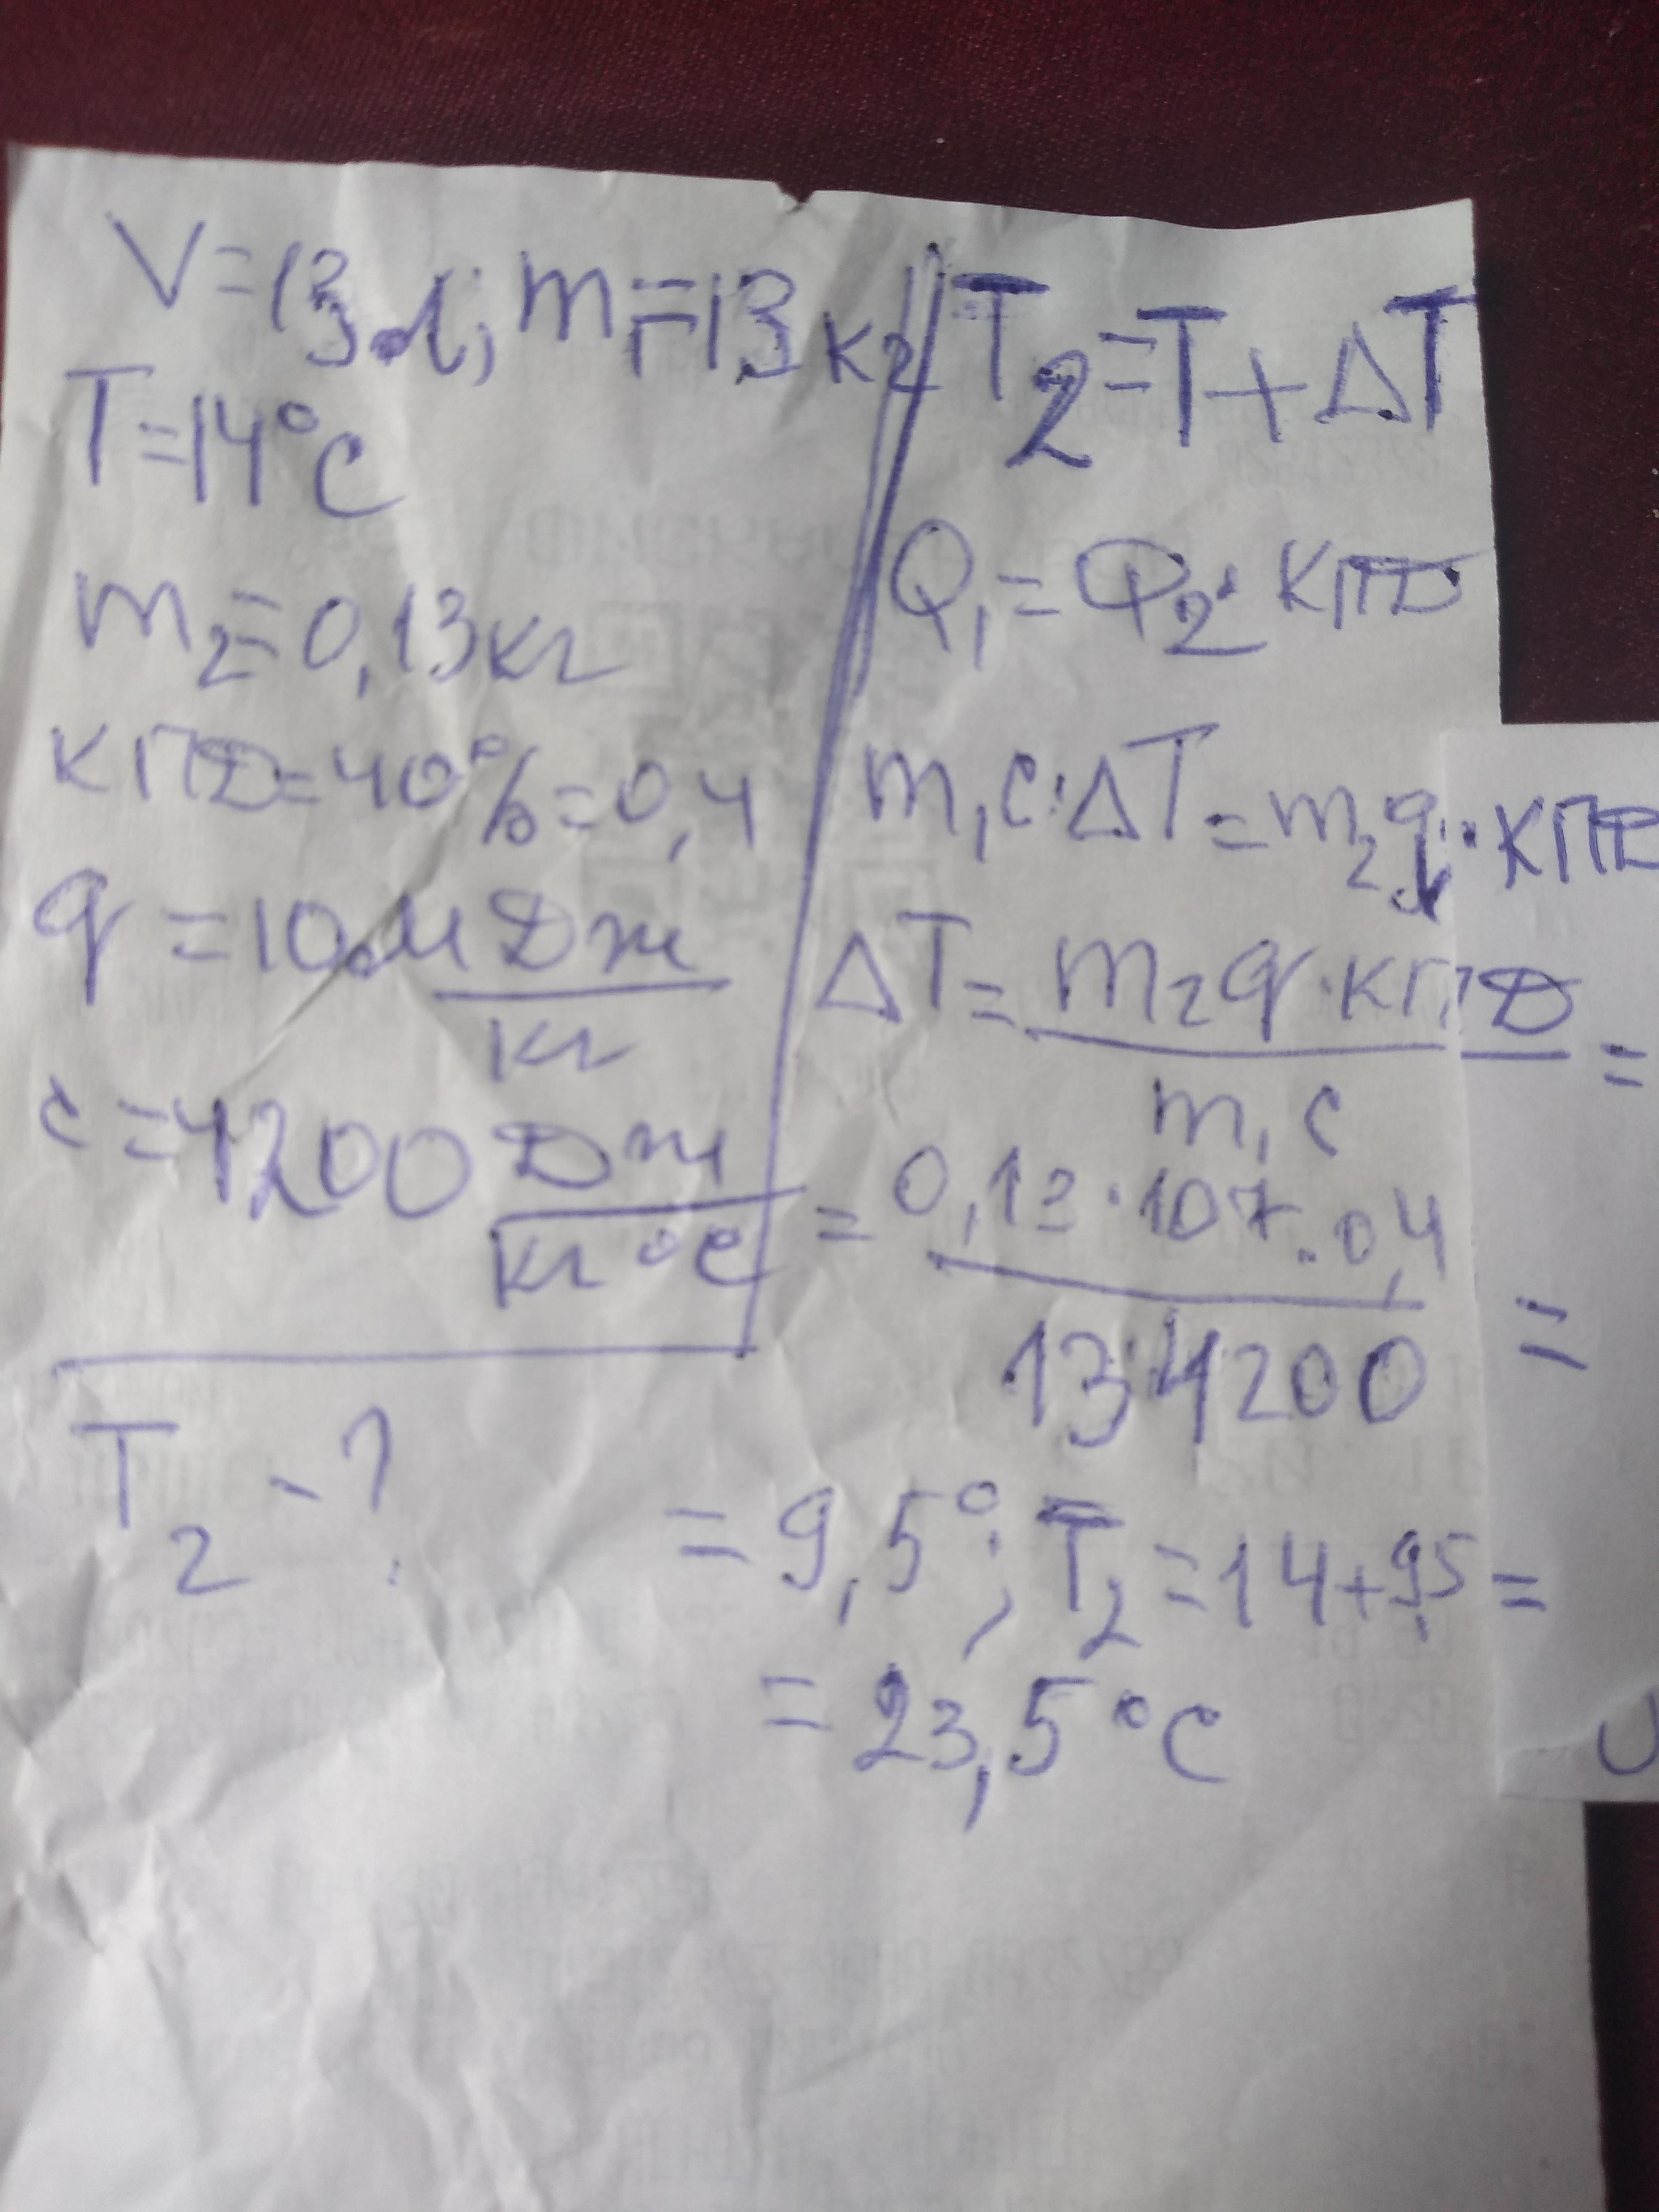 V=13л; m₁=13кг
T=14°C
m₂=0,13кг
КПД=40%=0,4
q=10 МДж/кг
c=4200 Дж/кг°C
T₂-?
T₂=T+ΔT
Q₁=Q₂·КПД
m₁c·ΔT=m₂q·КПД
ΔT=m₂q·КПД/m₁c=
=0,13·10⁷·0,4/13·4200=
=9,5°; T₂=14+9,5=
=23,5°C